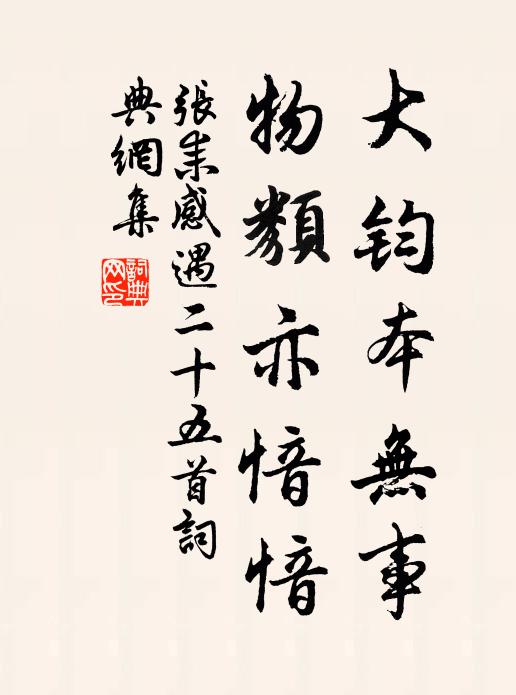 大鈞本無事
物類亦愔愔
張耒感遇二十五首詞
典網集
詞典
网印